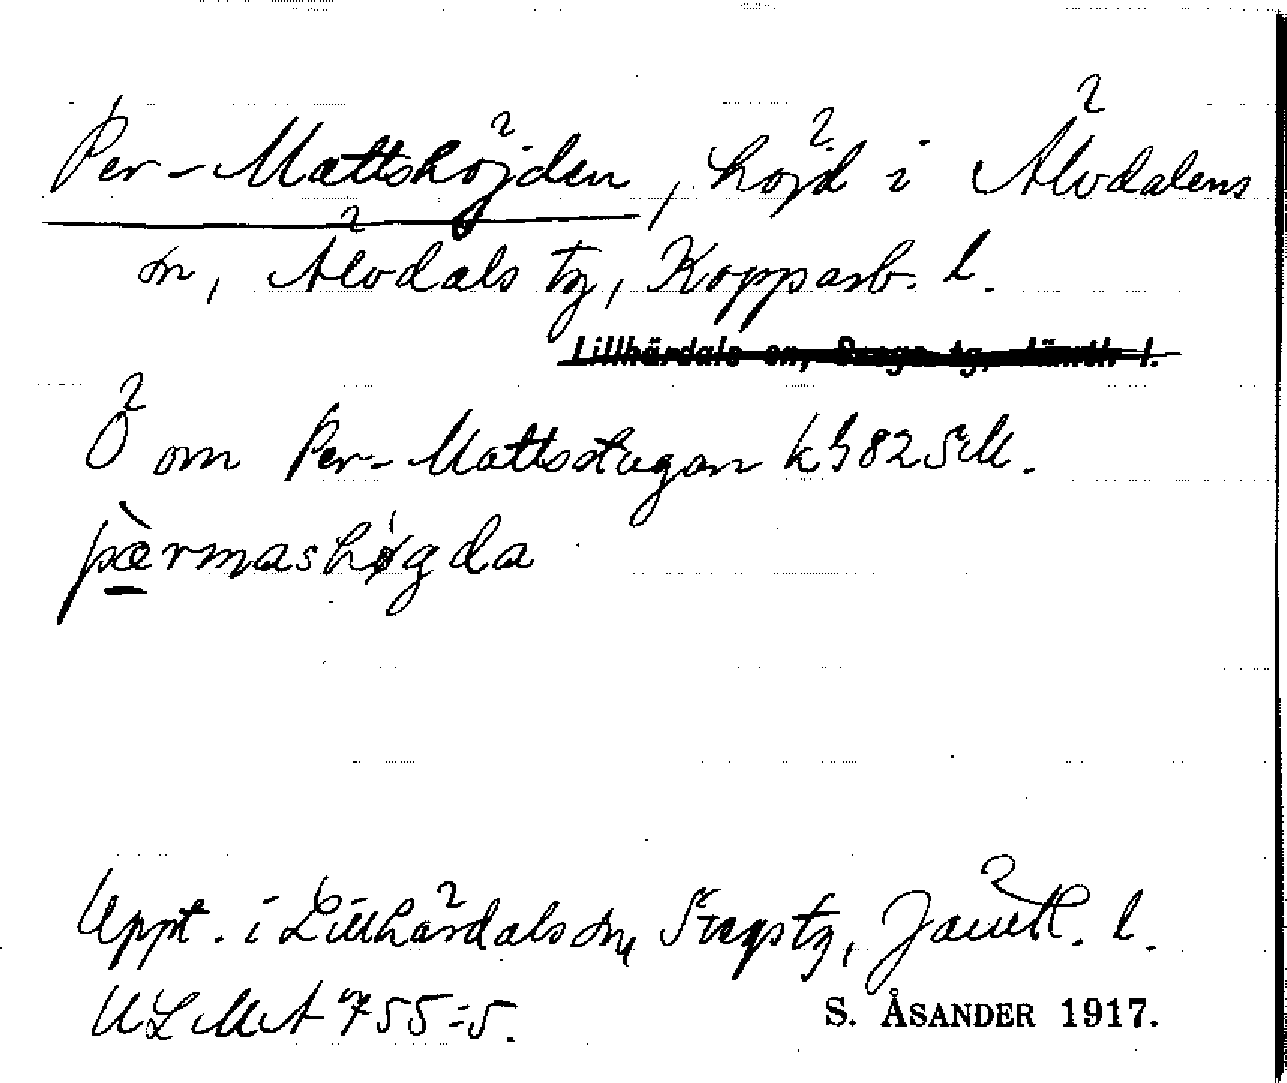 Per-Mattshöjden, höjd i Älvdalens
sn, Älvdals tg, Kopparb. l.
Lillhärdals sn, Svegs tg, Jämtl. l.
Ö om Per-Mattsstugan k 982 SM.
pærmashøgda
Uppt. i Lillhärdals sn, Svegs tg, Jämtl. l.
ULMA 755:5.
S. ÅSANDER 1917.